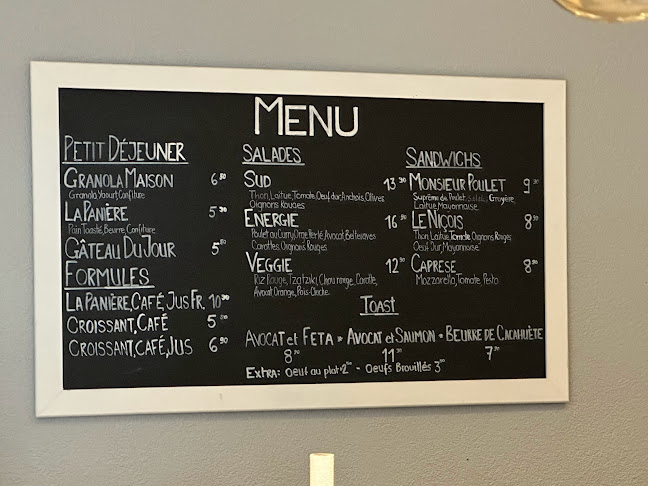 MENU
PETIT DÉJEUNER
GRANOLA MAISON 6.50
Granola, Yaourt, Confiture
LA PANIÈRE 5.50
Pain Toasté, Beurre, Confiture
GÂTEAU DU JOUR 5.50
FORMULES
LA PANIÈRE, CAFÉ, JUS FR. 10.50
CROISSANT, CAFÉ 5
CROISSANT, CAFÉ, JUS 6.90
SALADES
SUD 13.90
Thon, Laitue, Tomate, Oeuf dur, Anchois, Olives
Oignons Rouges
ENERGIE 16.50
Poulet au Curry, Orge Perlé, Avocat, Betteraves
Carottes, Oignons Rouges
VEGGIE 12.50
Riz Rouge, Tzatziki, Chou rouge, Carotte,
Avocat, Orange, Pois-Chiche
SANDWICHS
MONSIEUR POULET 9.50
Suprême de Poulet, Gruyère,
Laitue, Mayonnaise
LE NIÇOIS 8.50
Thon, Laitue, Tomate, Oignons Rouges
Oeuf Dur, Mayonnaise
CAPRESE 8.90
Mozzarella, Tomate, Pesto
TOAST
AVOCAT et FETA * AVOCAT et SAUMON * BEURRE DE CACAHUÈTE
8.90 11.50 7.90
EXTRA: Oeuf au plat - Oeufs Brouillés